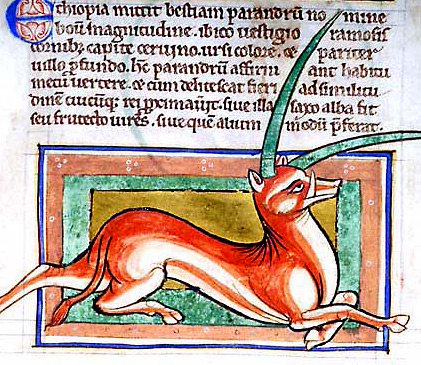 Ethiopia mittit bestiam parandrũ no mine
boũ magnitudine. ibico uestigio ramosis
cornibꝫ capite ceruino. ursi colore. &c pariter
uillo ꝓfundo. hẽ parandrũ affirm ant habitu
metu uertere. &c cum delitescat fieri ad similitu
dinẽ cuicũqꝫ rei ꝓximauit. siue illa saxo alba sit
seu frutecto uires. siue quẽ alium modũ p̃ferat.